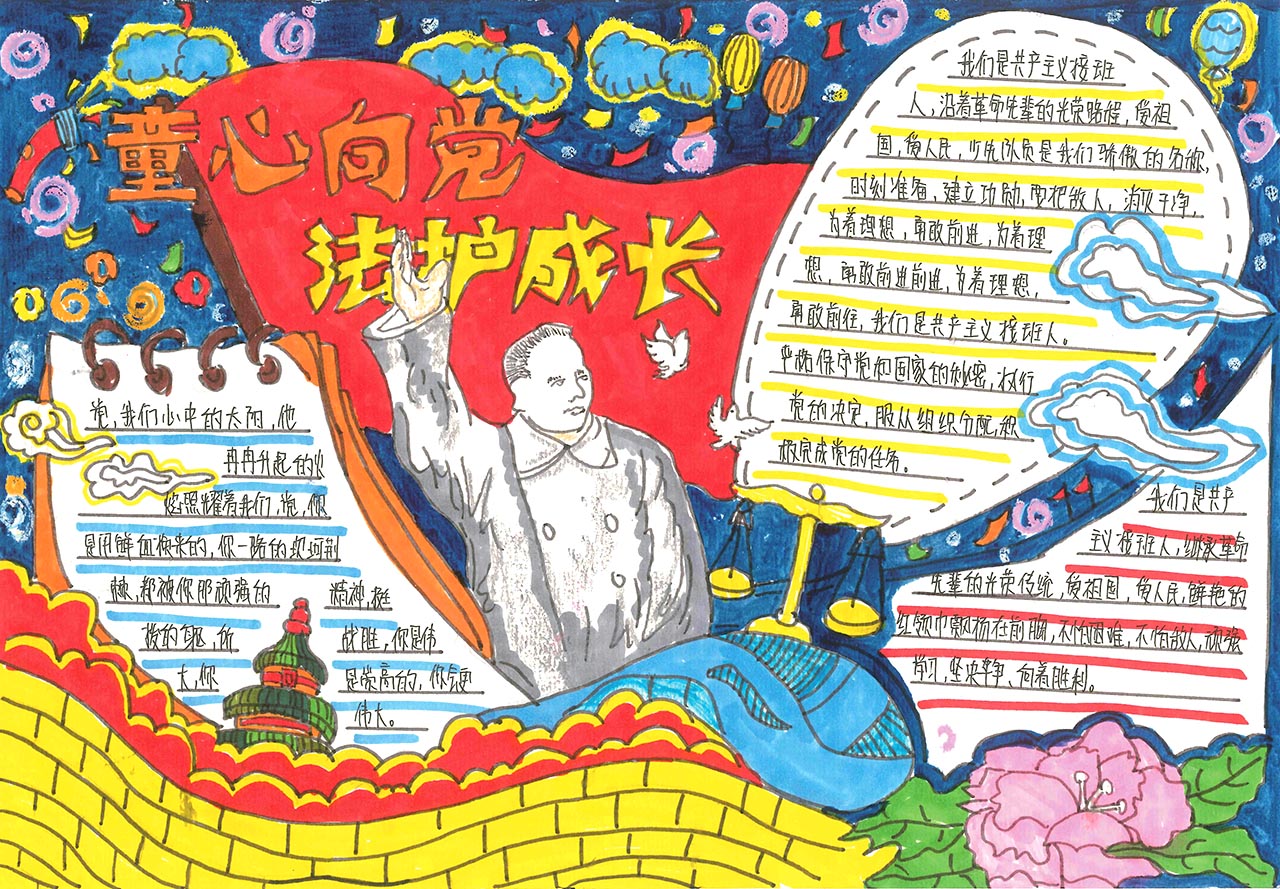 童心向党
法护成长
我们是共产主义接班
人，沿着革命先辈的光荣路程，爱祖
国，爱人民，少先队员是我们骄傲的名称，
时刻准备，建立功勋，要把敌人，消灭干净，
为着理想，勇敢前进，为着理
想，勇敢前进前进，为着理想，
勇敢前往，我们是共产主义接班人。
严格保守党和国家的秘密，执行
党的决定，服从组织分配，积
极完成党的任务。
党，我们心中的太阳，他
冉冉升起的火
焰照耀着我们，党，你
是用鲜血换来的，你一路的坎坷荆
棘，都被你那顽强的
精神，挺
拨的身躯，所
战胜，你是伟
大，你
是崇高的，你会更
伟大。
我们是共产
主义接班人，继承革命
先辈的光荣传统，爱祖国，爱人民，鲜艳的
红领巾飘扬在前胸，不怕困难，不怕敌人，顽强
学习，坚决斗争，向着胜利。